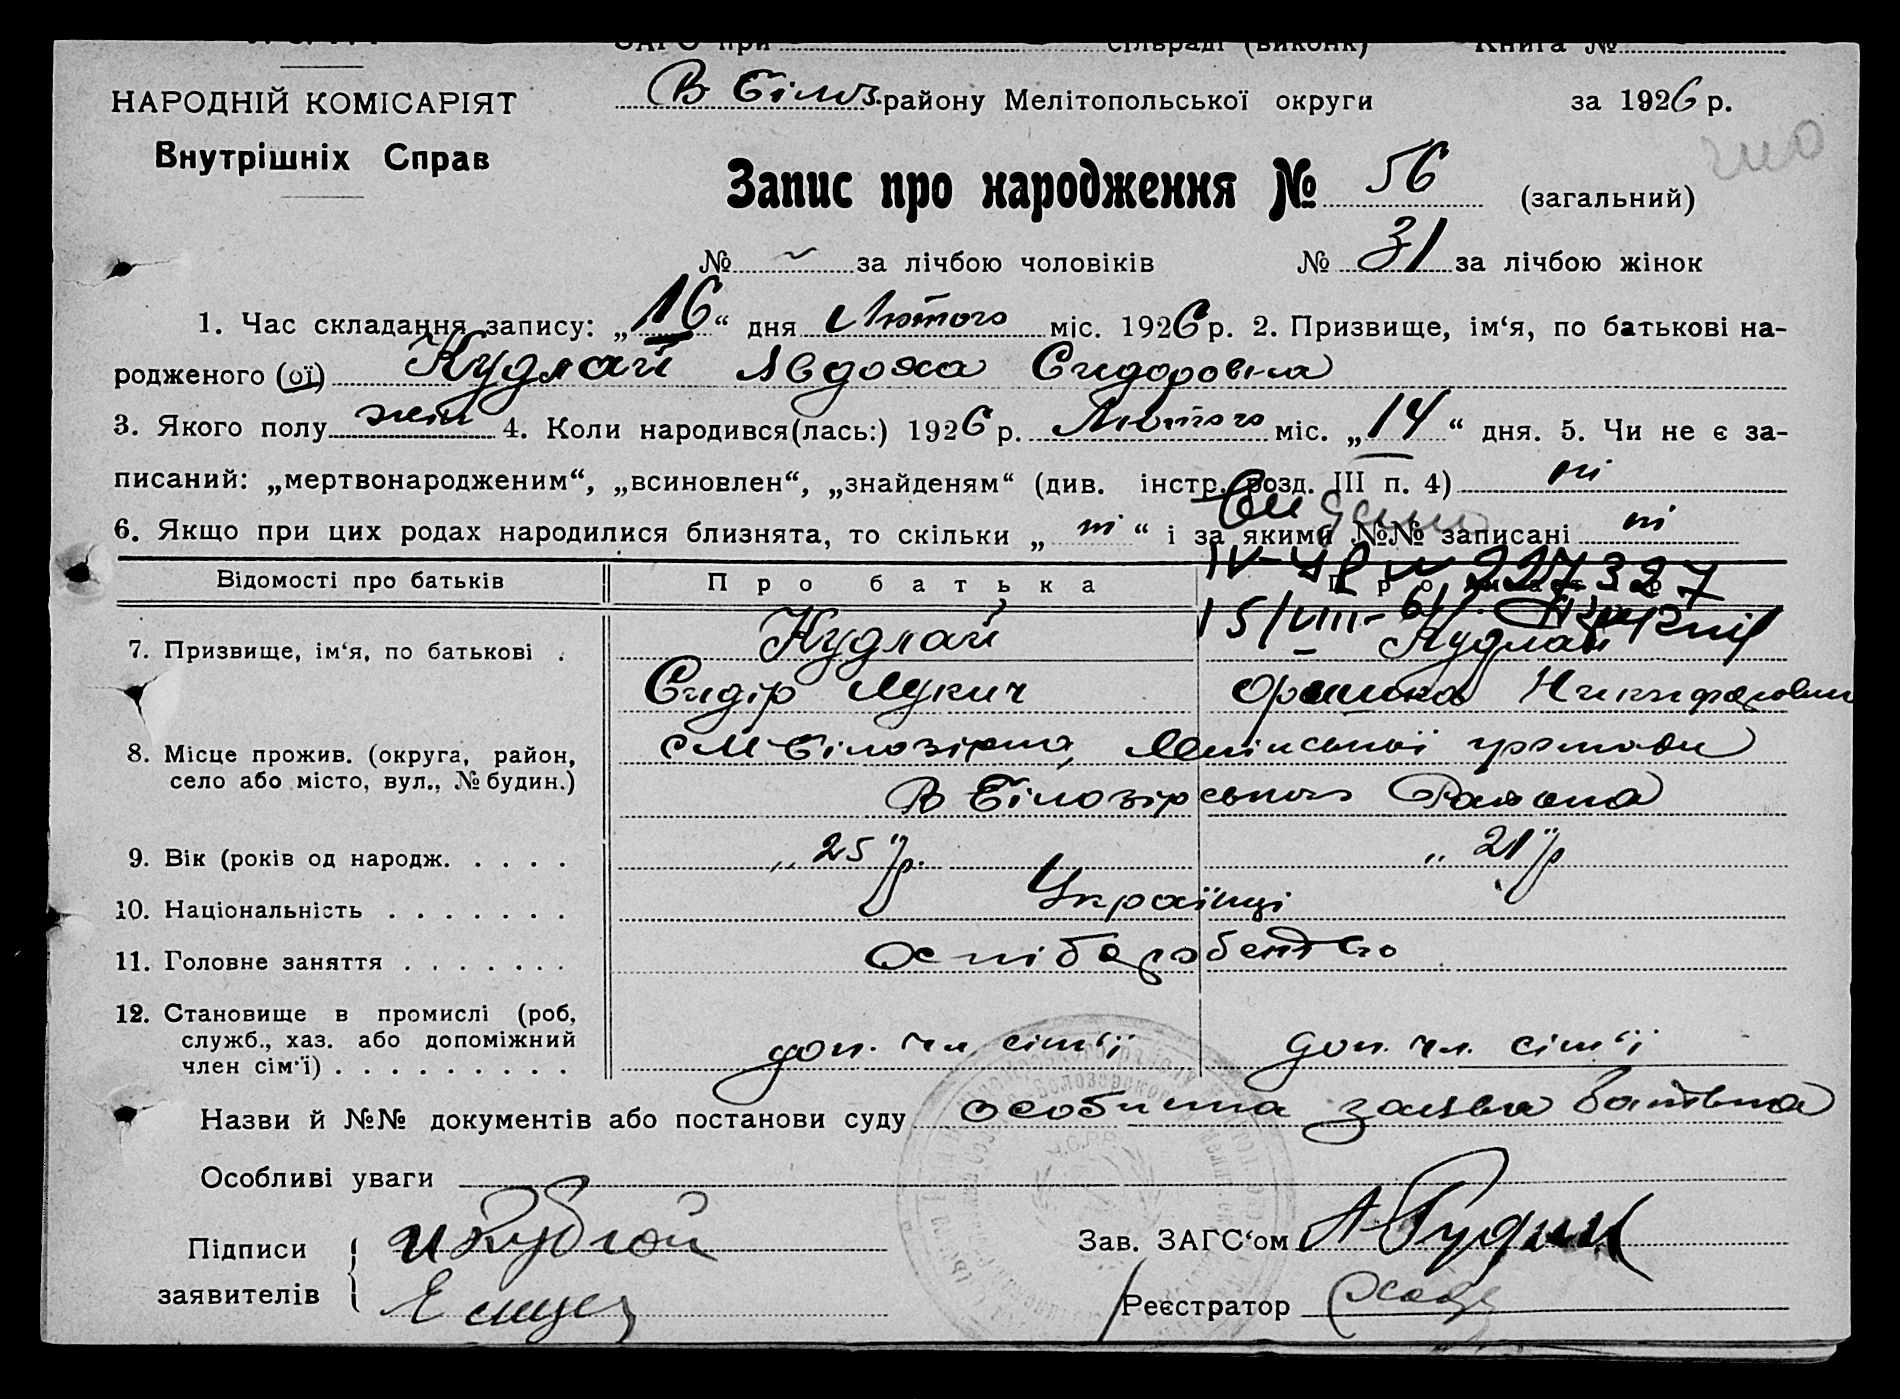 ЗАГС при сільраді (виконк) Книга №
НАРОДНІЙ КОМІСАРІЯТ
Внутрішніх Справ
В Білоз. району Мелітопольської округи за 1926 р.
Запис про народження № 56 (загальний)
№ за лічбою чоловіків № 31 за лічбою жінок
1. Час складання запису: „16“ дня Лютого міс. 1926 р. 2. Призвище, ім‘я, по батькові на-
родженого (ої) Кудлай Явдоха Сидоровна
3. Якого полу жін 4. Коли народився(лась:) 1926 р. Лютого міс. „14“ дня. 5. Чи не є за-
писаний: „мертвонародженим“, „всиновлен“, „знайденям“ (див. інстр. розд. III п. 4) ні
6. Якщо при цих родах народилися близнята, то скільки „ ні “ і за якими №№ записані ні
Відомості про батьків Про батька Про
227327
15/VIII-61
7. Призвище, ім‘я, по батькові . Кудлай Кудлай
Сидір Лукич Оришка
8. Місце прожив. (округа, район,
село або місто, вул., № будин.)
с М Білозірка, громади
В Білозірського Района
9. Вік (років од народж. . . . . „ 25 р. „ 21 р
10. Національність . . . . . . . Українці
11. Головне заняття . . . . . . .
12. Становище в промислі (роб,
служб., хаз. або допоміжний
член сім‘ї) . . . . . . . . . доп. чл сім‘ї доп. чл. сім‘ї
Назви й №№ документів або постанови суду особиста заява батька
Особливі уваги
Підписи
заявителів
Зав. ЗАГС‘ом
Реєстратор